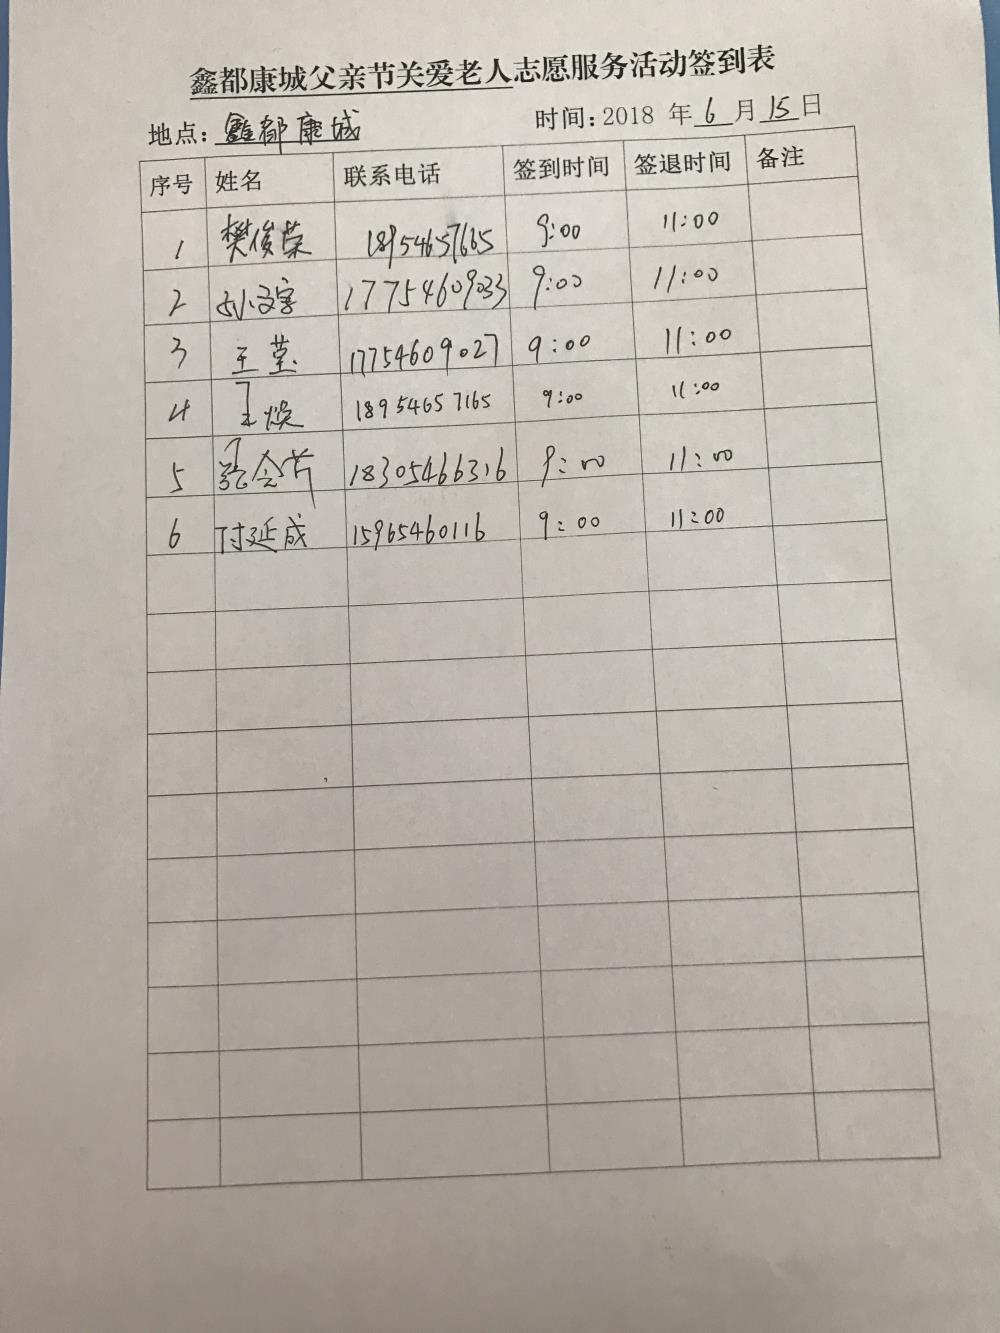 鑫都康城父亲节关爱老人志愿服务活动签到表
地点：鑫都康城 时间：2018 年 6 月 15 日
序号 姓名 联系电话 签到时间 签退时间 备注
1 樊俊荣 18954657665 9:00 11:00
2 17754609033 9:00 11:00
3 王莹 17754609027 9:00 11:00
4 王焕 18954657165 9:00 11:00
5 张会芹 18305466316 9:00 11:00
6 付延成 15965460116 9:00 11:00